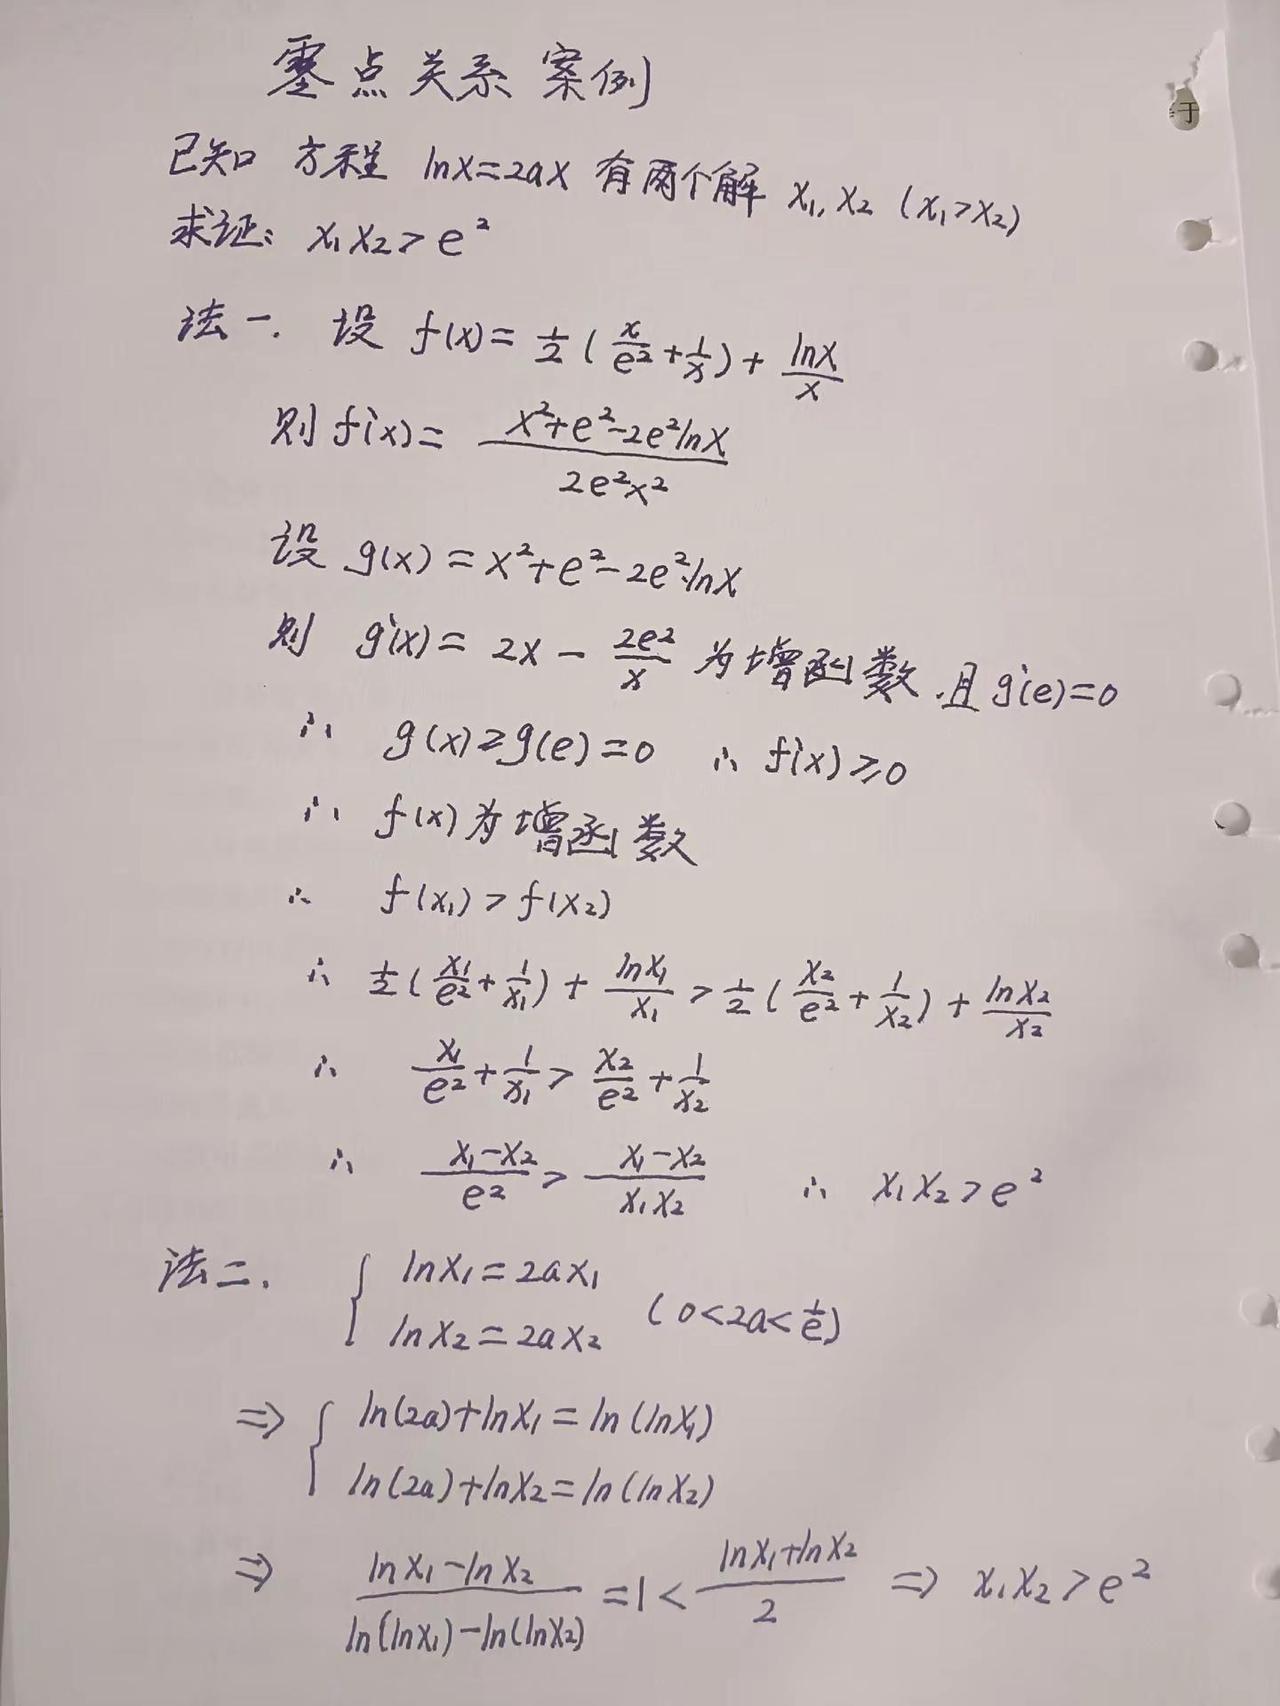 零点关系案例
于
已知 方程 lnx=2ax 有两个解 x₁,x₂ (x₁>x₂)
求证: x₁x₂>e²
法一. 设 f(x)=½(x/e²+1/x)+lnx/x
则 f'(x)=(x²+e²-2e²lnx)/(2e²x²)
设 g(x)=x²+e²-2e²·lnx
则 g'(x)=2x-2e²/x 为增函数.且g'(e)=0
∴ g(x)≥g(e)=0 ∴ f'(x)≥0
∴ f(x)为增函数
∴ f(x₁)>f(x₂)
∴ ½(x₁/e²+1/x₁)+lnx₁/x₁>½(x₂/e²+1/x₂)+lnx₂/x₂
∴ x₁/e²+1/x₁>x₂/e²+1/x₂
∴ (x₁-x₂)/e²>(x₁-x₂)/(x₁x₂) ∴ x₁x₂>e²
法二. { lnx₁=2ax₁
lnx₂=2ax₂ (0<2a<1/e)
⇒ { ln(2a)+lnx₁=ln(lnx₁)
ln(2a)+lnx₂=ln(lnx₂)
⇒ (lnx₁-lnx₂)/(ln(lnx₁)-ln(lnx₂))=1<(lnx₁+lnx₂)/2 ⇒ x₁x₂>e²